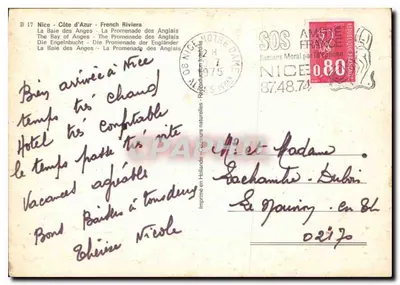 D 17 Nice - Côte d'Azur - French Riviera
La Baie des Anges - La Promenade des Anglais
The Bay of Anges - The Promenade des Anglais
Die Engelnbucht - Die Promenade der Engländer
La Baie des Anges - La Promenade des Anglais
Bien arrivée à Nice
temps très chaud
Hotel très confortable
le temps passe très vite
Vacances agréable
Bons Baisers à tous deux
Thérèse Nicole
Imprimé en Hollande
06 NICE
1975
SOS AMITIE
FRANCE
NICE
87.48.74
0,80
Mr et Madame
Lachambre Dubois
Le Nouvion en Th
02170